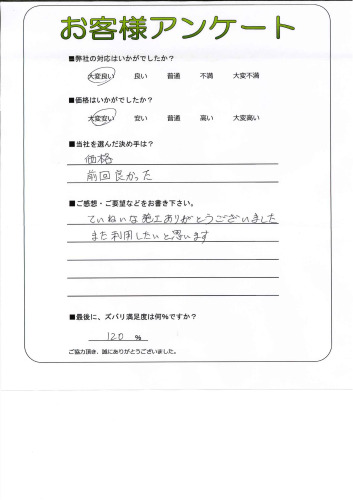 お客様アンケート
■弊社の対応はいかがでしたか？
大変良い 良い 普通 不満 大変不満
■価格はいかがでしたか？
大変安い 安い 普通 高い 大変高い
■当社を選んだ決め手は？
価格
前回良かった
■ご感想・ご要望などをお書き下さい。
ていねいな施工ありがとうございました
また利用したいと思います
■最後に、ズバリ満足度は何％ですか？
120 ％
ご協力頂き、誠にありがとうございました。